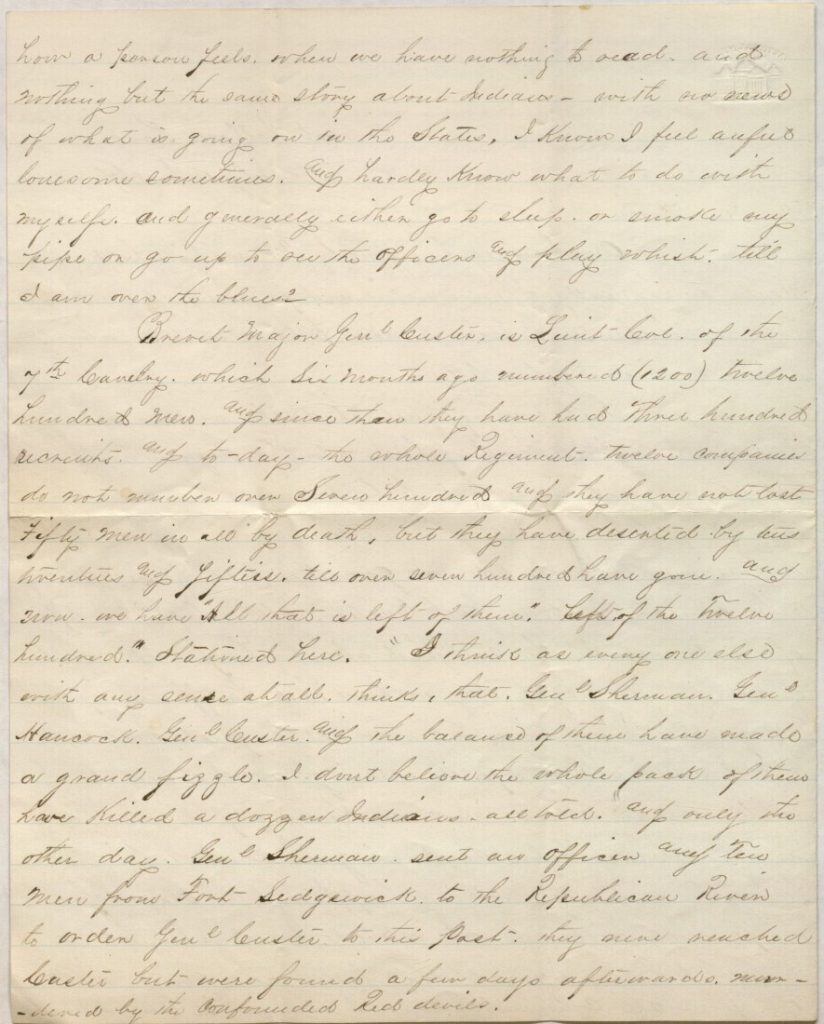 how a person feels. when we have nothing to read. and
nothing but the same story about Indians - with no news
of what is going on in the States, I Know I feel awful
lonesome sometimes. and hardly Know what to do with
myself. and generally either go to sleep. or smoke my
pipe or go up to see the officers and play whist. till
I am over the blues.
Brevet Major Genl Custer, is Lieut Col. of the
7th Cavelry. which Six months ago numbered (1200) twelve
hundred men. and since then they have had three hundred
recruits. and to-day - the whole Regiment. twelve companies
do not number over Seven hundred and they have not lost
Fifty men in all by death, but they have deserted by tens
twenties and fifties. till over seven hundred have gone. and
now. we have "All that is left of them". left of the Twelve
hundred." Stationed here. "I think as every one else
with any sense at all. thinks, that. Genl Sherman. Genl
Hancock. Genl Custer. and the balance of them have made
a grand fizzle. I dont believe the whole pack of them
have Killed a dozzen Indians - all told. and only the
other day. Genl Sherman. sent an officer and Ten
men from Fort Sedgwick. to the Republican River
to order Genl Custer to this Post. they never reached
Custer but were found a few days afterwards. mur-
-dered by the confounded Red devils.